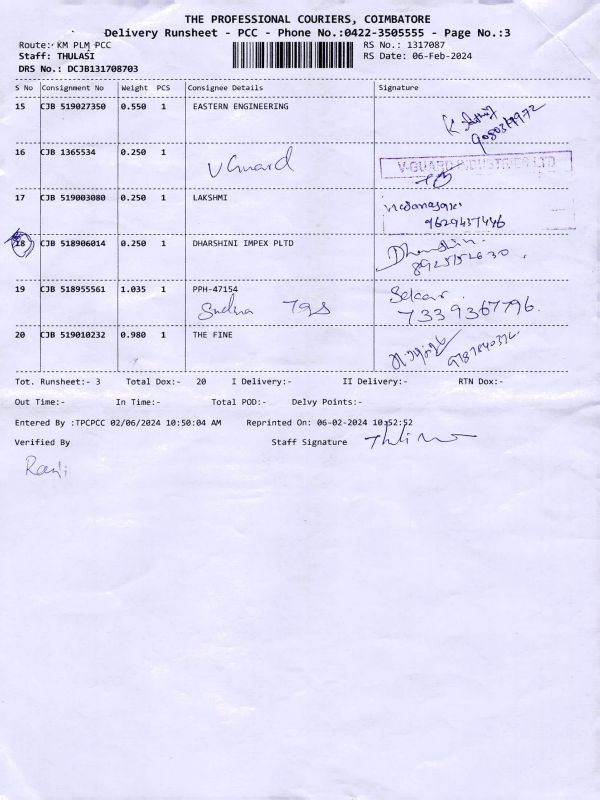 THE PROFESSIONAL COURIERS, COIMBATORE
Delivery Runsheet - PCC - Phone No.:0422-3505555 - Page No.:3
Route: KM PLM PCC RS No.: 1317087
Staff: THULASI RS Date: 06-Feb-2024
DRS No.: DCJB131708703
S No Consignment No Weight PCS Consignee Details Signature
15 CJB 519027350 0.550 1 EASTERN ENGINEERING
16 CJB 1365534 0.250 1 V Guard V-GUARD INDUSTRIES LTD
17 CJB 519003080 0.250 1 LAKSHMI
9629437446
18 CJB 518906014 0.250 1 DHARSHINI IMPEX PLTD Dharshini
19 CJB 518955561 1.035 1 PPH-47154
7339367796.
20 CJB 519010232 0.980 1 THE FINE
Tot. Runsheet:- 3 Total Dox:- 20 I Delivery:- II Delivery:- RTN Dox:-
Out Time:- In Time:- Total POD:- Delvy Points:-
Entered By :TPCPCC 02/06/2024 10:50:04 AM Reprinted On: 06-02-2024 10:52:52
Verified By Staff Signature